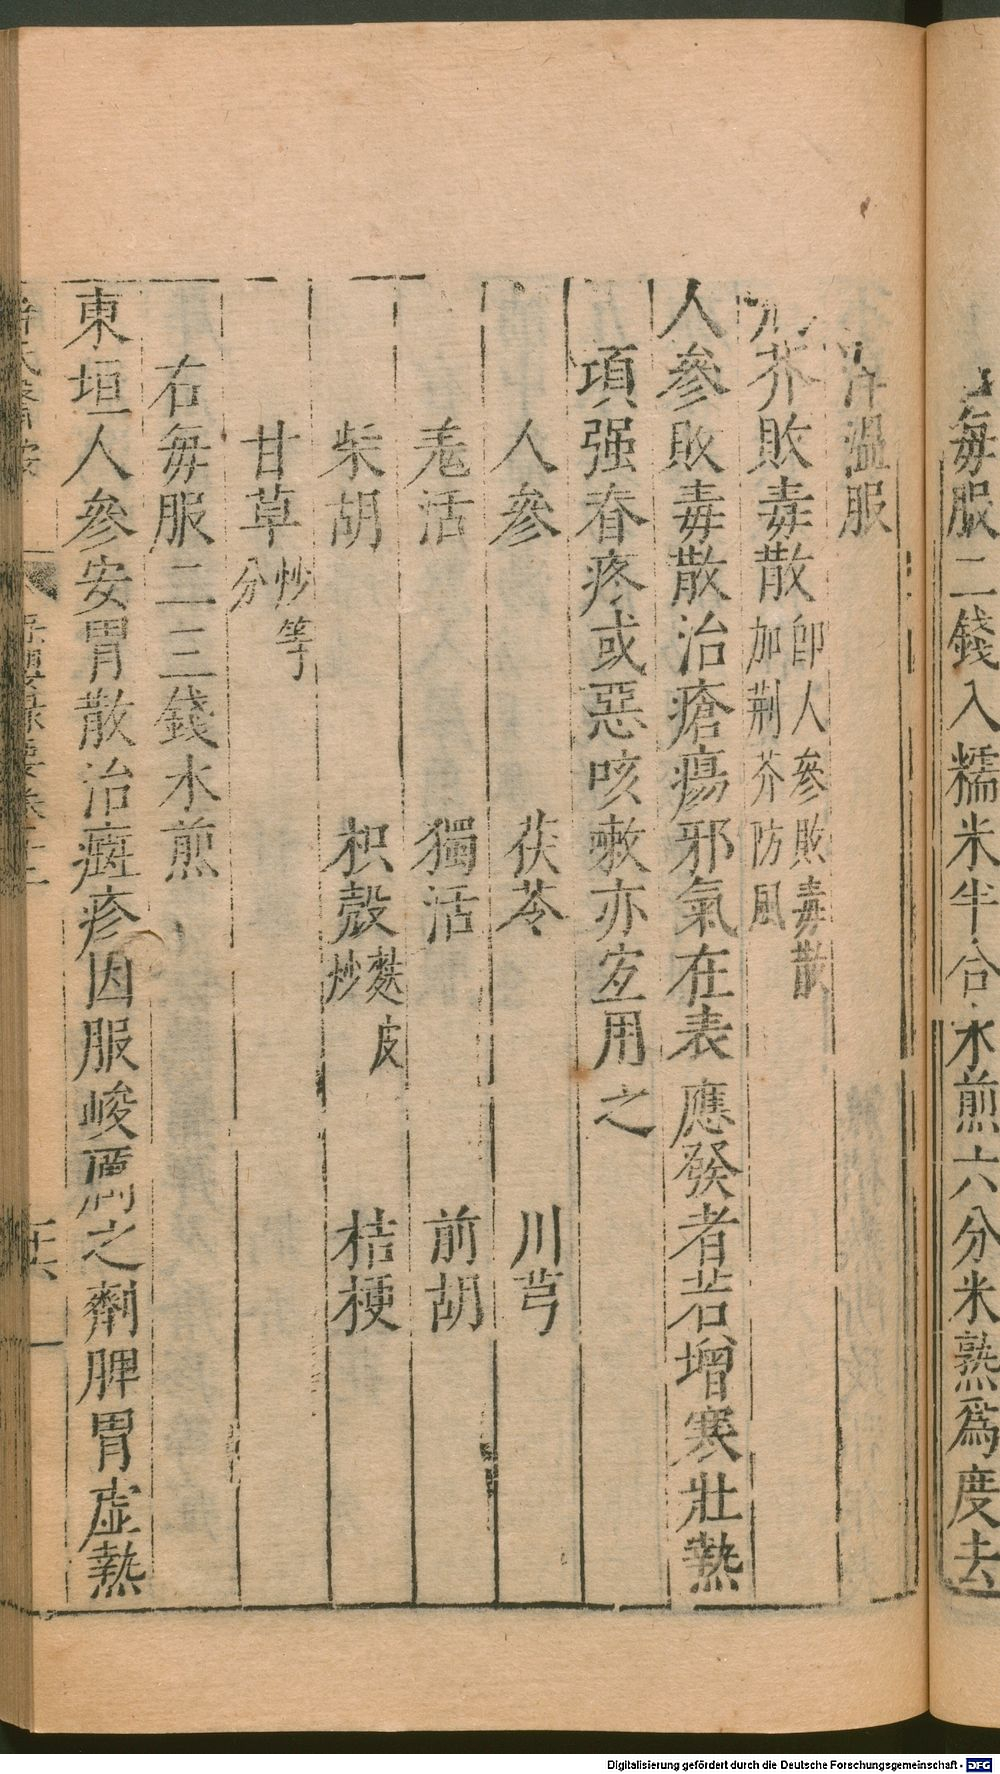 毎服二錢入糯米半合水煎六分米熟爲度去
滓温服
荆芥敗毒散 卽人參敗毒散加荆芥防風
人參敗毒散治瘡瘍邪氣在表應發者若增寒壯熱
項强脊疼或惡咳嗽亦宐用之
人參 茯苓 川芎
羌活 獨活 前胡
柴胡 枳殼 麩皮炒 桔梗
甘草 炒等分
右毎服二三錢水煎
東垣人參安胃散治癍疹因服峻厲之劑脾胃虚熱
Digitalisierung gefördert durch die Deutsche Forschungsgemeinschaft - DFG